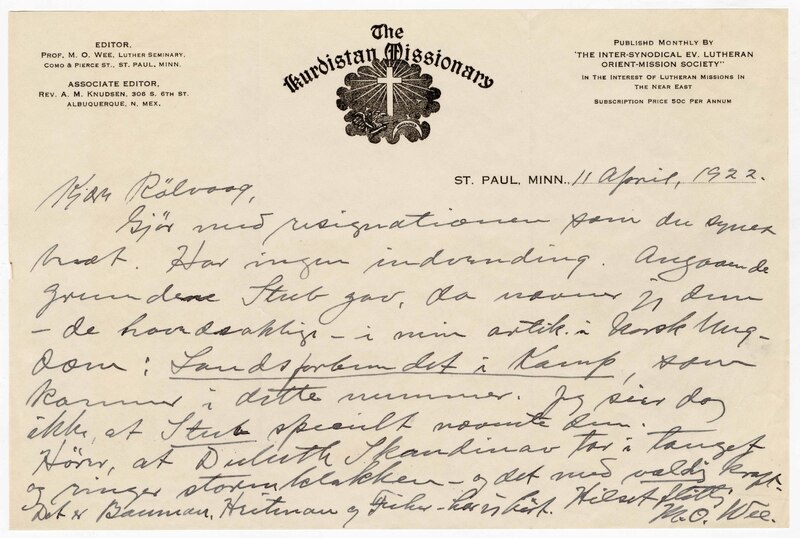 EDITOR,
PROF. M. O. WEE, LUTHER SEMINARY,
COMO & PIERCE ST., ST. PAUL, MINN.
ASSOCIATE EDITOR,
REV. A. M. KNUDSEN, 306 S. 6TH ST.
ALBUQUERQUE, N. MEX.
The
Kurdistan Missionary
PUBLISHD MONTHLY BY
"THE INTER-SYNODICAL EV. LUTHERAN
ORIENT-MISSION SOCIETY"
IN THE INTEREST OF LUTHERAN MISSIONS IN
THE NEAR EAST
SUBSCRIPTION PRICE 50C PER ANNUM
ST. PAUL, MINN., 11 April, 1922.
Kjære Rölvaag,
Gjör med resignationen som du synes
bedst. Har ingen indvending. Angaaende
grundene Stub gav, da nævner jeg dem
- de hovedsaklige - i min artik. i Norsk Ung-
dom: Landsforbundet i Kamp, som
kommer i dette nummer. Jeg sier dog
ikke, at Stub specielt nævnte dem.
Hörer, at Duluth Skandinav tar i tauget
og ringer stormklokken - og det med vældig kraft.
Det er Bauman, Heitman og - har vi hört. Hilset flittig
M. O. Wee.